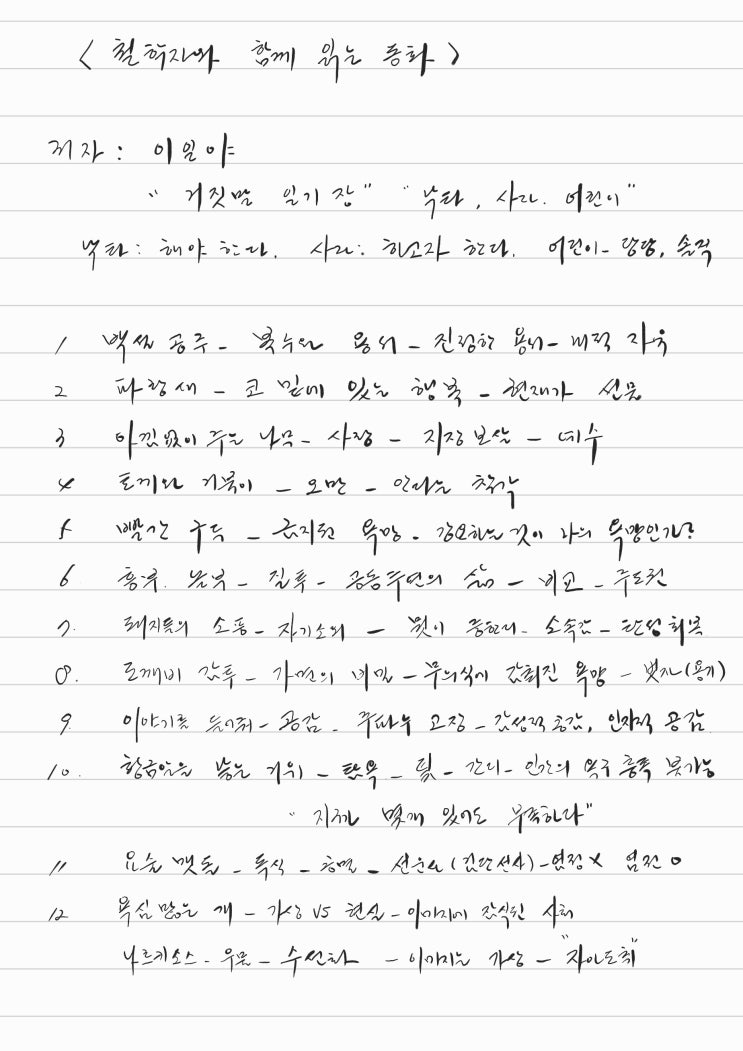 < 철학자와 함께 읽는 동화 >
저자 : 이일야
" 거짓말 일기장 " " 낙타, 사자. 어린이 "
낙타 : 해야 한다. 사자 : 하고자 한다. 어린이 - 당당, 솔직
1 백설 공주 - 복수와 용서 - 진정한 용서 - 내적 자유
2 파랑새 - 코 밑에 있는 행복 - 현재가 선물
3 아낌없이 주는 나무 - 사랑 - 지장보살 - 예수
4 토끼와 거북이 - 오만 - 안다는 착각
5 빨간 구두 - 금지된 욕망. 강요하는 것이 나의 욕망인가?
6. 흥부. 놀부 - 질투 - 공동주연의 삶 - 비교 - 주도권
7. 돼지들의 소풍 - 자기소외 - 뭣이 중헌디 - 소속감 - 탄성회복
8. 도깨비 감투 - 가면의 비밀 - 무의식에 갇혀진 욕망 - 벗자 (용기)
9. 이야기를 들어줘 - 공감. 주파수 고장 - 감성적 공감, 인지적 공감
10. 황금알을 낳는 거위 - 탐욕 - 덫 - 간디 - 인간의 욕구 충족 불가능
" 지구가 몇개 있어도 부족하다 "
11 요술 맷돌 - 독식 - 총명 - 선운사 (검단선사) - 염정 X 염전 O
12 욕심 많은 개 - 가상 VS 현실 - 이미지에 잠식된 사회
나르키소스 - 우물 - 수선화 - 이미지는 가상 - "자아도취"